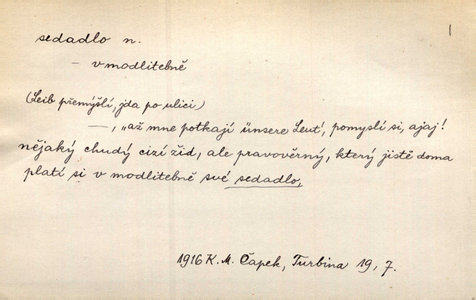 1
sedadlo n.
– v modlitebně
(Leib přemýšlí, jda po ulici)
—, „až mne potkají ünsere Leut', pomyslí si, ajaj!
nějaký chudý cizí žid, ale pravověrný, který jistě doma
platí si v modlitebně své sedadlo,
1916 K. M. Čapek, Turbina 19, 7.